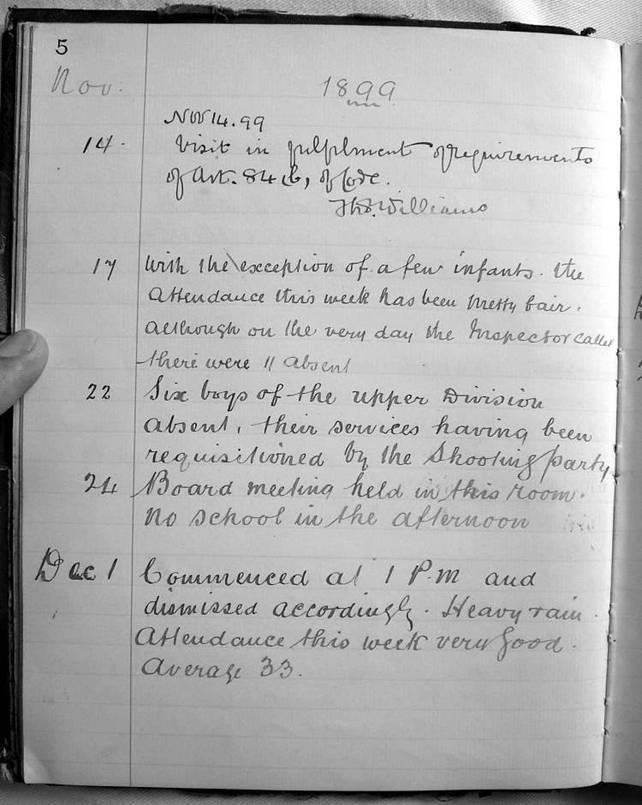 5
Nov. 1899
Nov 14. 99
14. Visit in fulfilment of requirements
of Art. 84 (b) of Code.
Thos. Williams
17 With the exception of a few infants. the
attendance this week has been pretty fair.
although on the very day the Inspector called
there were 11 absent
22 Six boys of the upper Division
absent, their services having been
requisitioned by the Shooting party
24 Board meeting held in this room.
No school in the afternoon
Dec 1 Commenced at 1 P.M and
dismissed accordingly. Heavy rain.
Attendance this week very good.
Average 33.